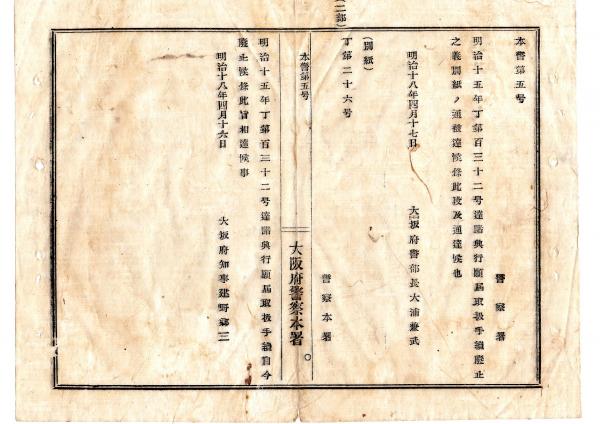 (二部)
本警第五号
警察署
明治十五年丁第百三十二号達諸興行願届取扱手續廢止
之義別紙ノ通被達候條此段及通達候也
明治十八年四月十七日
大阪府警部長大浦兼武
(別紙)
丁第二十六号
警察本署
本警第五号
大阪府警察本署
明治十五年丁第百三十二号達諸興行願届取扱手續自今
廢止候條此旨相達候事
明治十八年四月十六日
大阪府知事建野郷三